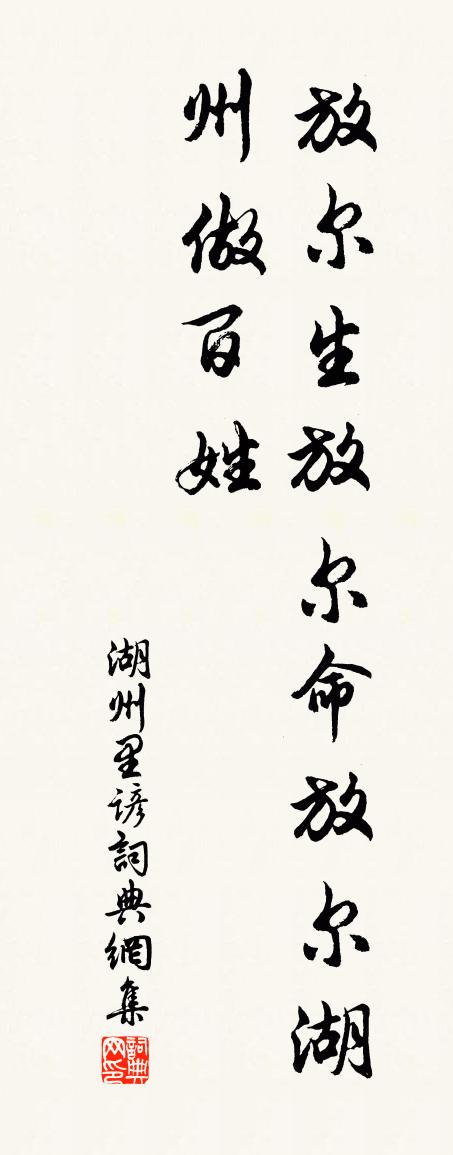 放尔生放尔命放尔湖
州做百姓
湖州里谚詞典網集
詞典网印